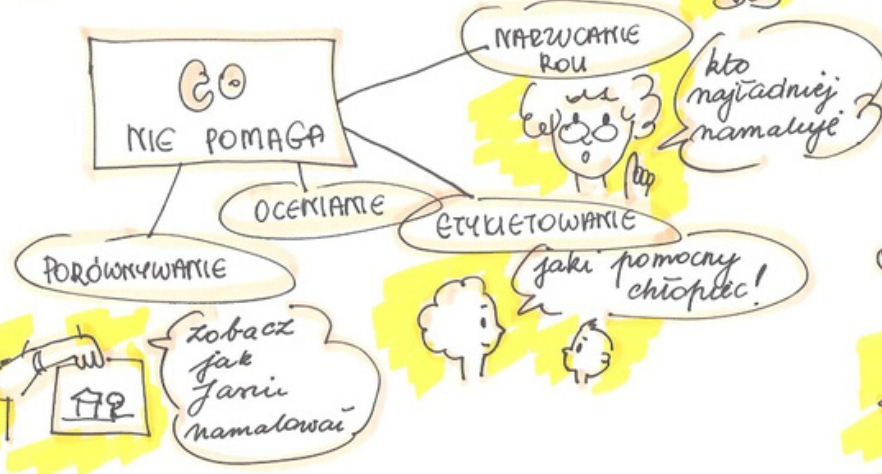 CO
NIE POMAGA
NARZUCANIE
ROLI
kto
najładniej
namaluje?
OCENIANIE
ETYKIETOWANIE
jaki pomocny
chłopiec!
PORÓWNYWANIE
zobacz
jak
Jasiu
namalował